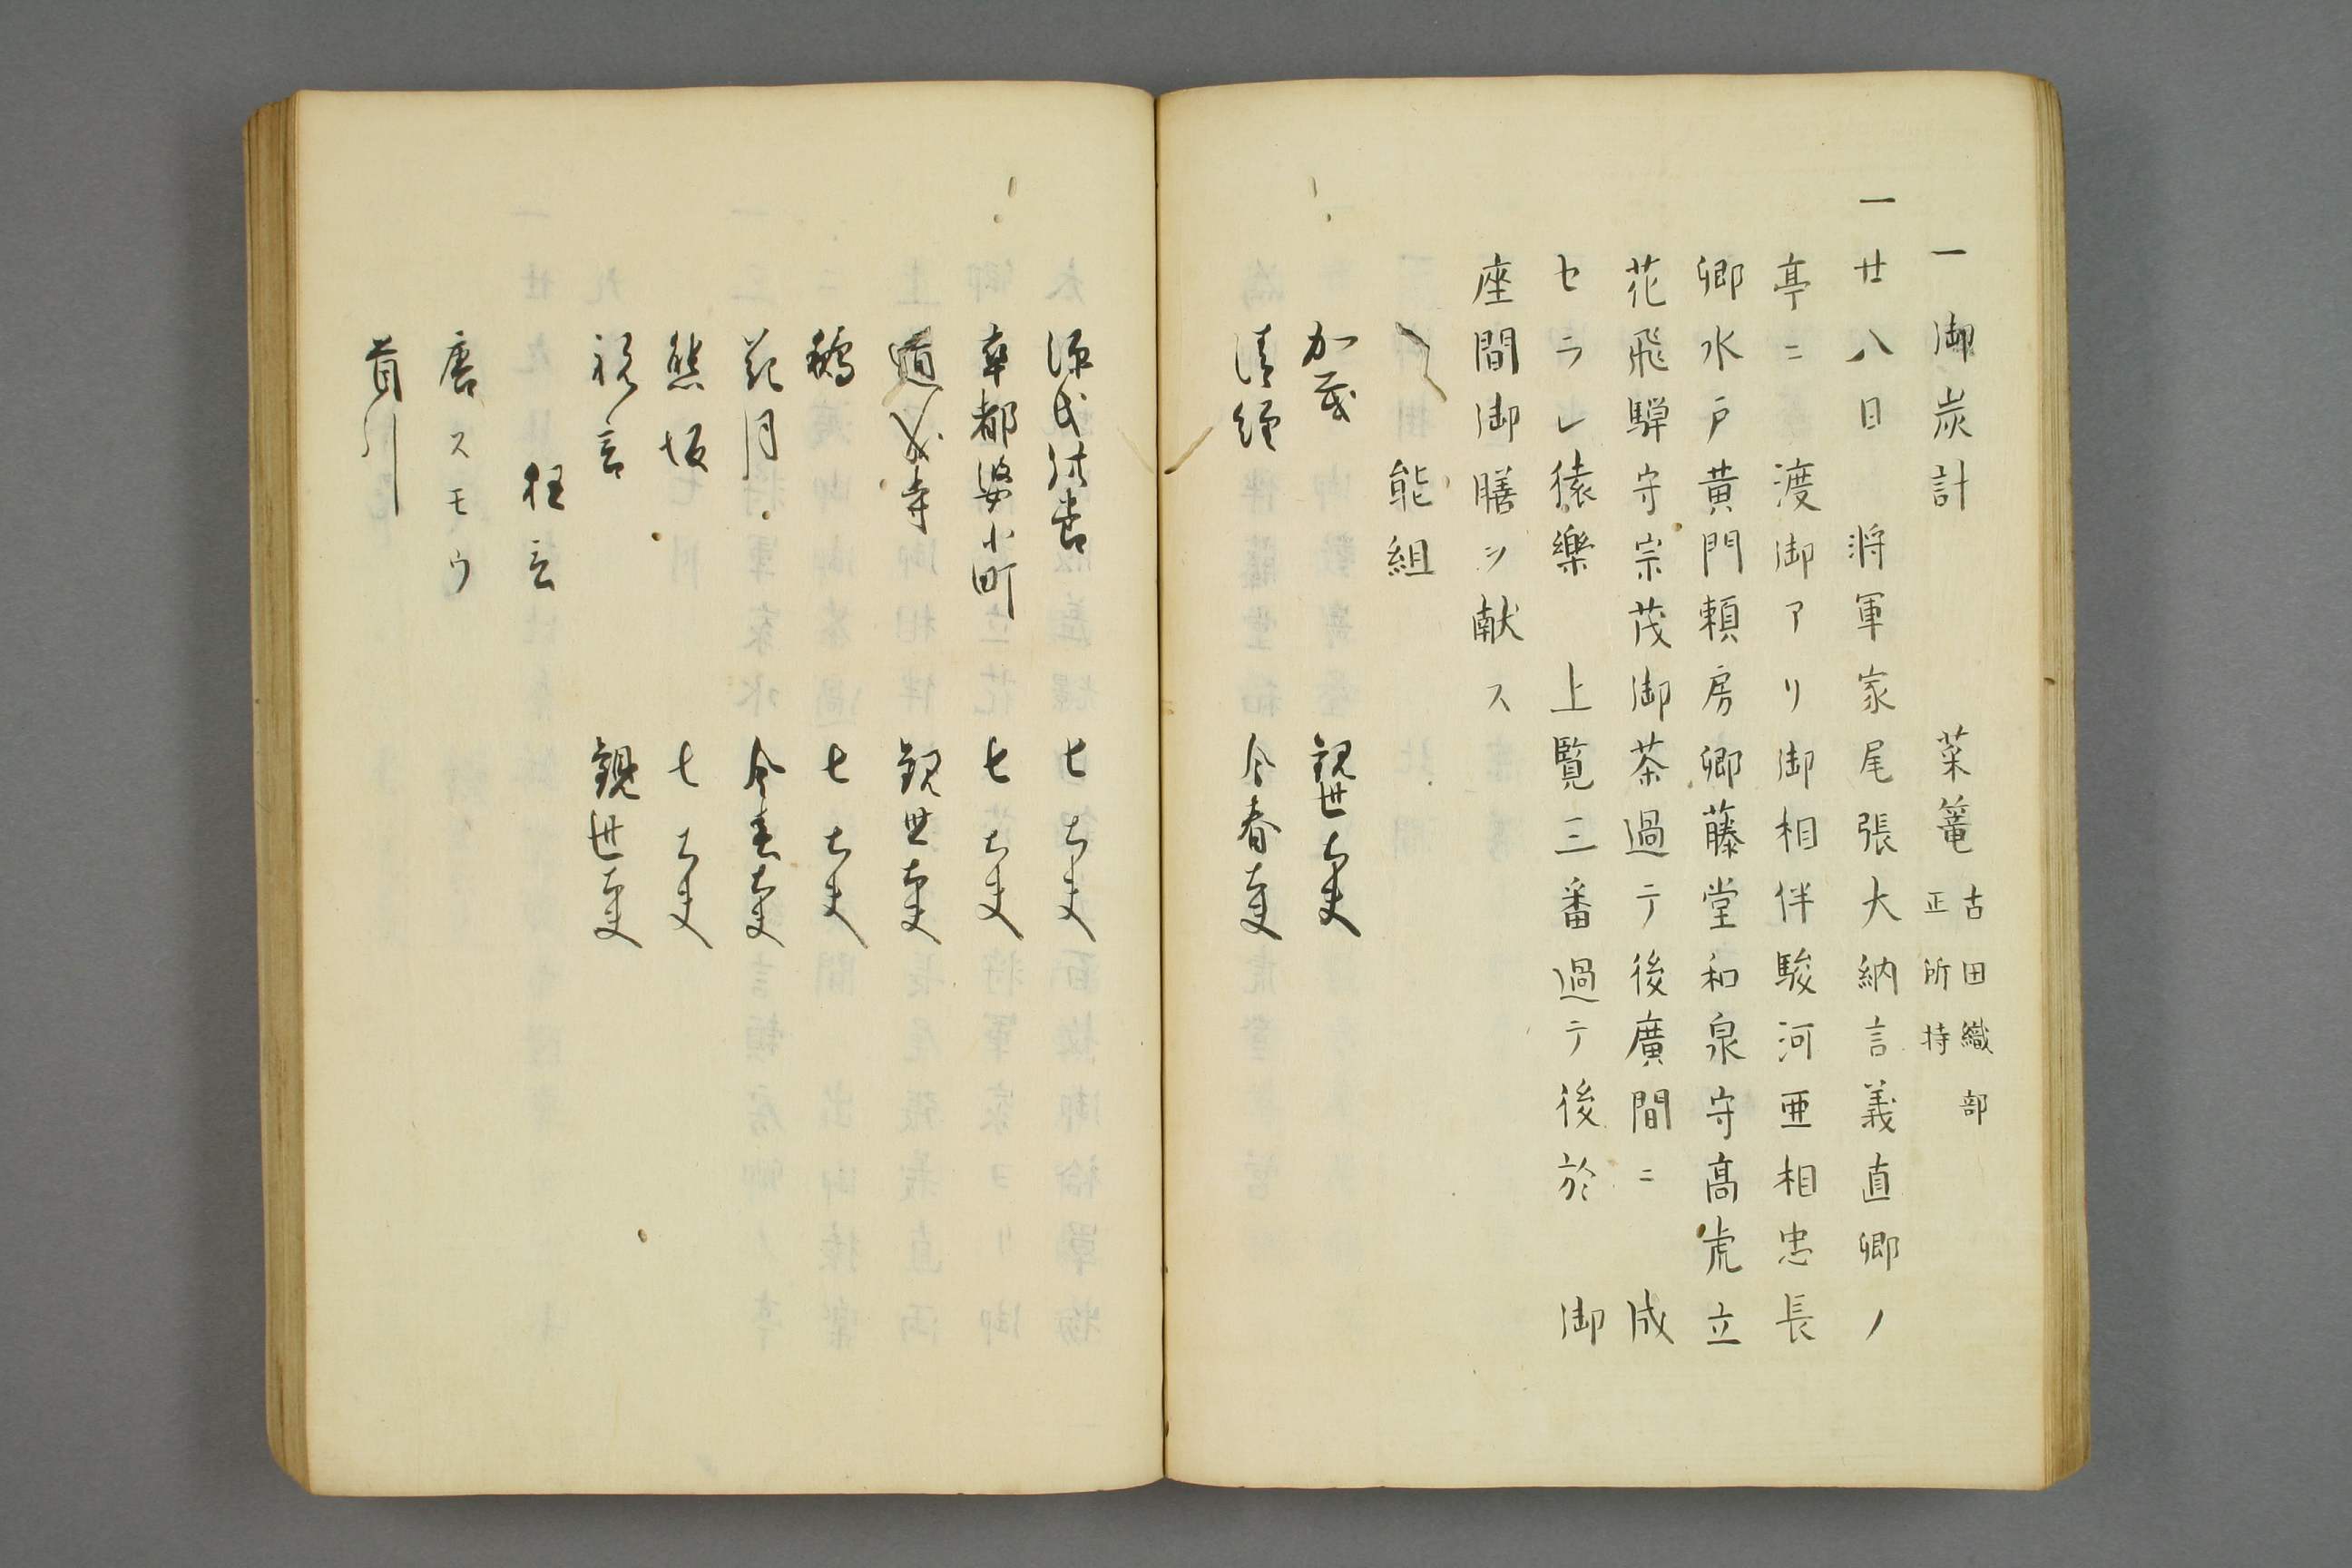 一御炭計 菜篭 古田織部正所持
一廿八日 将軍家尾張大納言義直卿ノ
亭ニ渡御アリ御相伴駿河亜相忠長
卿水戸黄門頼房卿藤堂和泉守高虎立
花飛騨守宗茂御茶過テ後廣間ニ 成
セラレ猿樂 上覧三番過テ後於 御
座間御膳ヲ献ス
能組
加茂 観世大夫
清経 今春大夫
源氏供養 七大夫
卒都婆小町 七大夫
道成寺 観世大夫
鵺 七大夫
花月 今春大夫
熊坂 七大夫
祝言 観世大夫
狂言
唐スモウ
首引